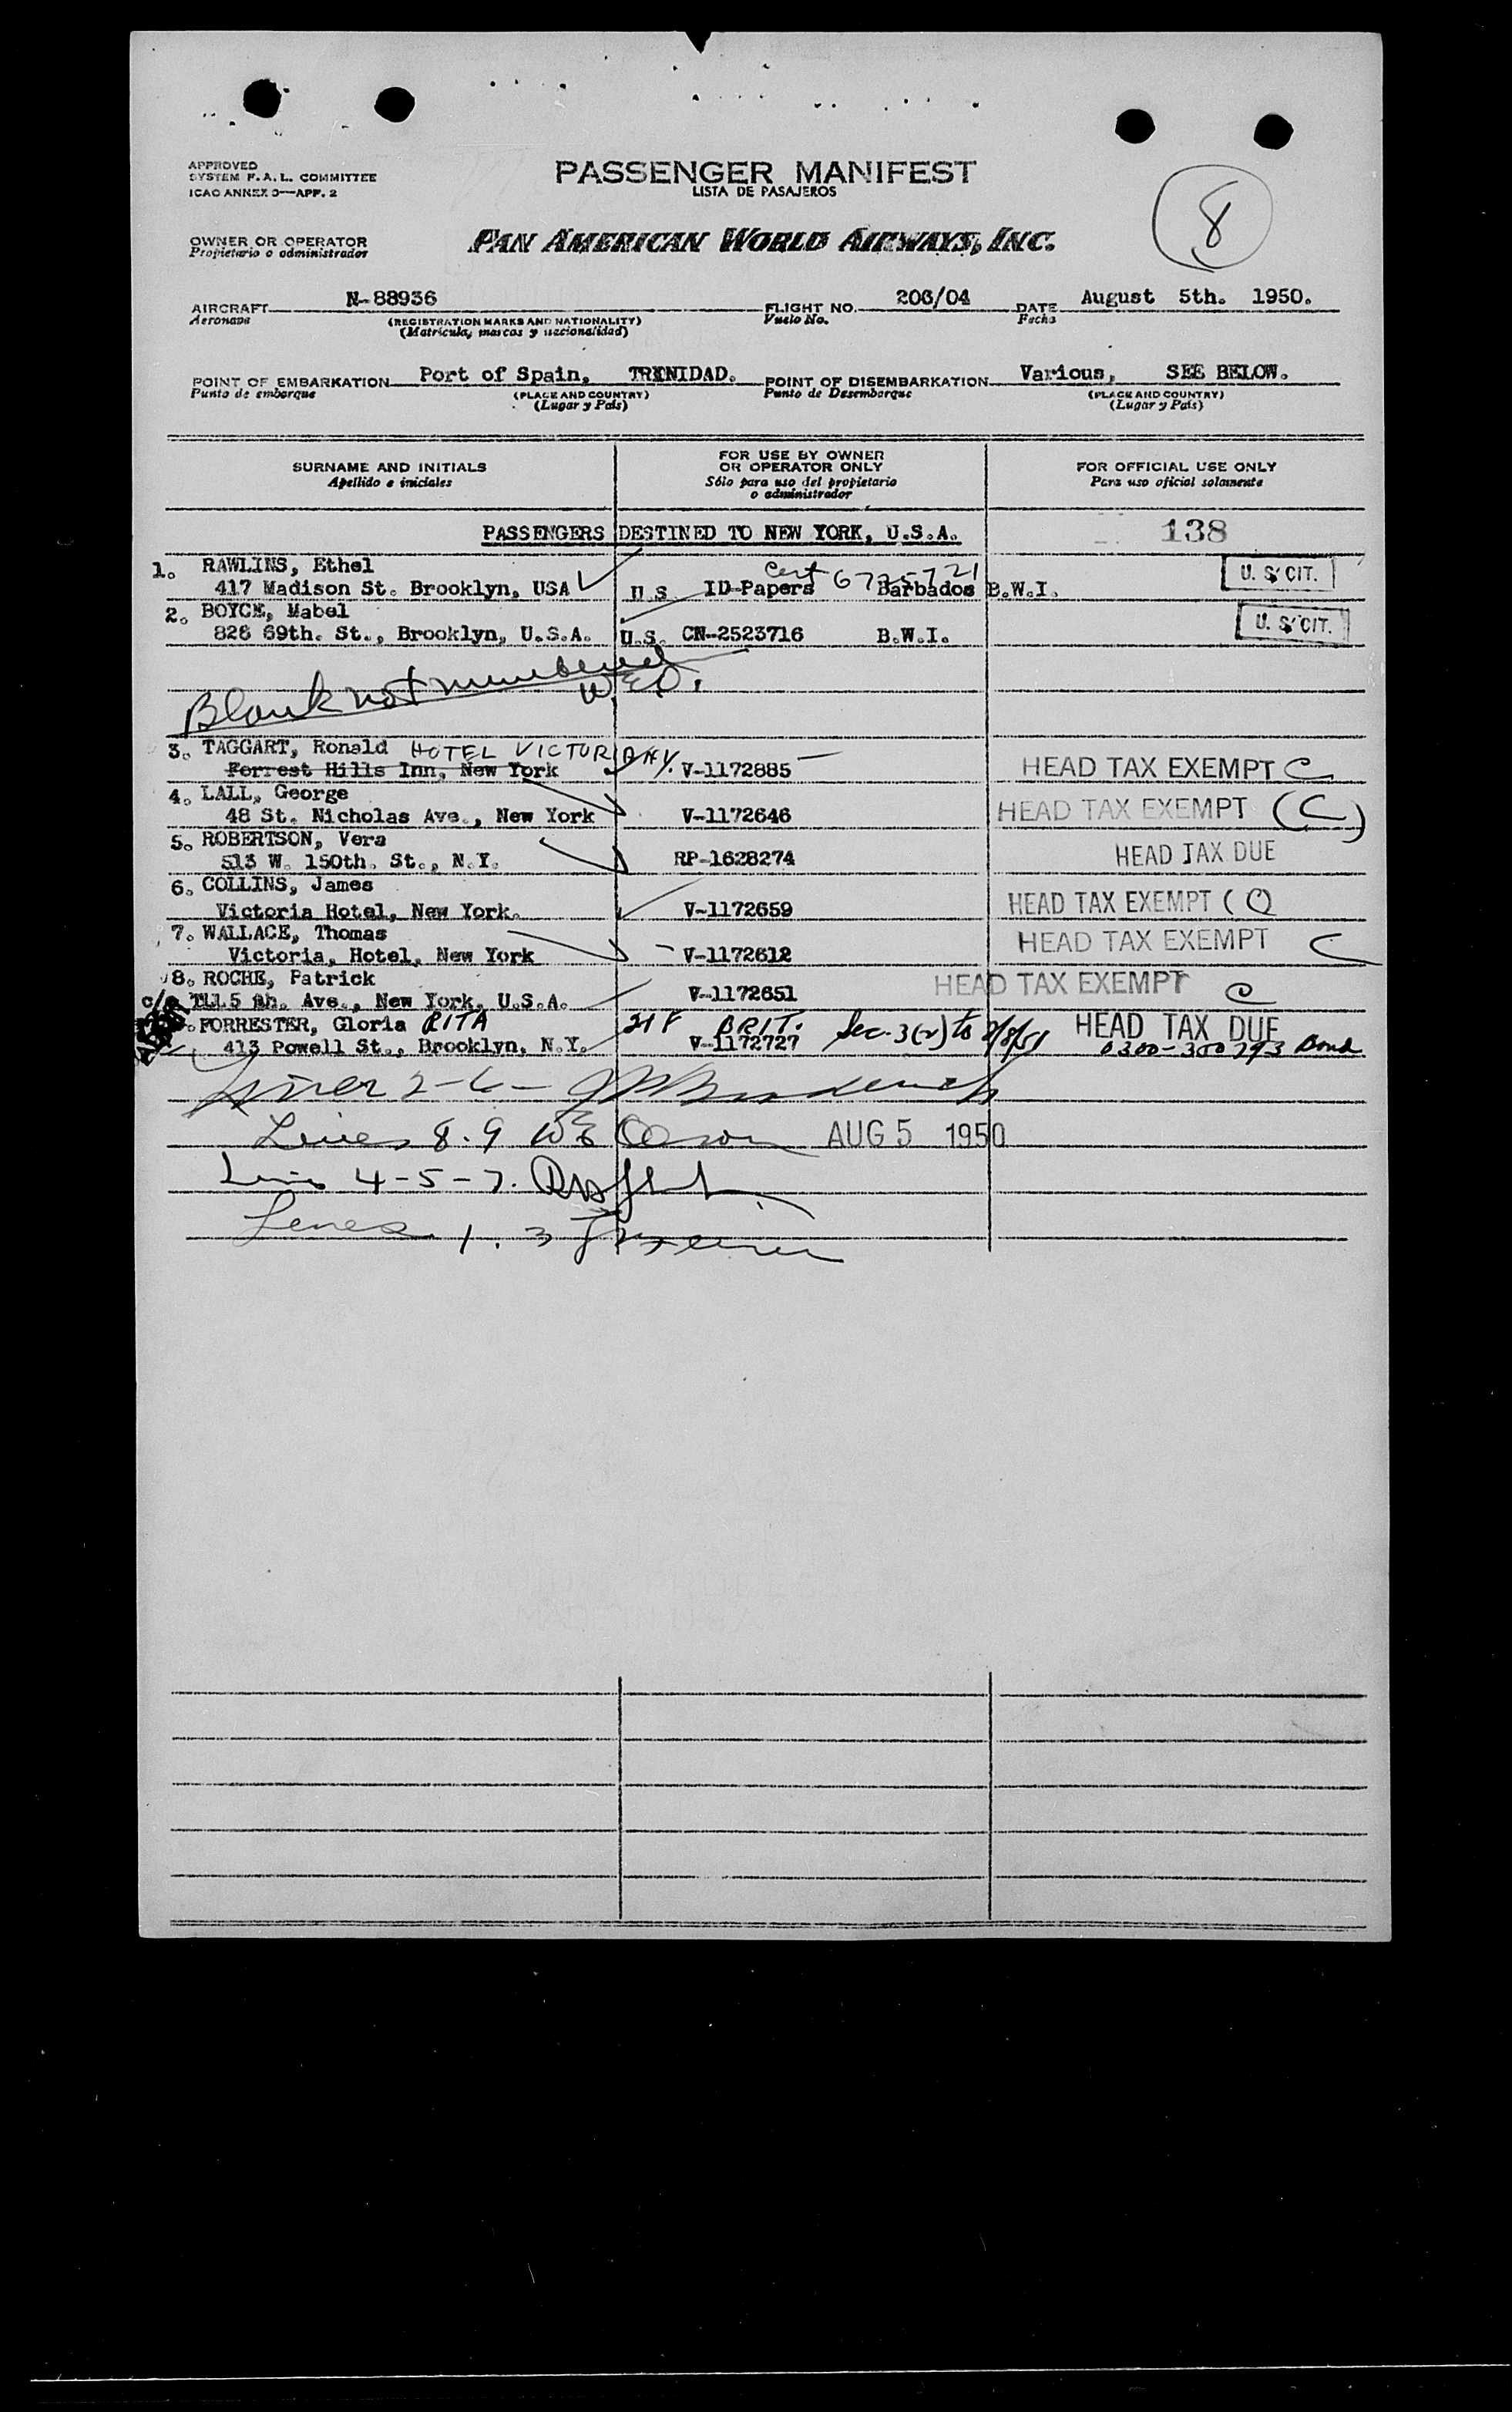 APPROVED
SYSTEM F.A.L. COMMITTEE
ICAO ANNEX 9—APP. 2
PASSENGER MANIFEST
LISTA DE PASAJEROS
8
OWNER OR OPERATOR
Propietario o administrador
PAN AMERICAN WORLD AIRWAYS, INC.
AIRCRAFT N-88936 FLIGHT NO. 206/04 DATE August 5th. 1950.
Aeronave (REGISTRATION MARKS AND NATIONALITY) Vuelo No. Fecha
(Matrícula, marcas y nacionalidad)
POINT OF EMBARKATION Port of Spain, TRINIDAD. POINT OF DISEMBARKATION Various, SEE BELOW.
Punto de embarque (PLACE AND COUNTRY) Punto de Desembarque (PLACE AND COUNTRY)
(Lugar y País) (Lugar y País)
SURNAME AND INITIALS FOR USE BY OWNER OR OPERATOR ONLY FOR OFFICIAL USE ONLY
Apellido e iniciales Sólo para uso del propietario o administrador Para uso oficial solamente
PASSENGERS DESTINED TO NEW YORK, U.S.A. 138
1. RAWLINS, Ethel Cert 6725721 U.S. CIT.
417 Madison St. Brooklyn, USA U.S. ID-Papers Barbados B.W.I.
2. BOYCE, Mabel U.S. CIT.
826 69th. St., Brooklyn, U.S.A. U.S. CN-2523716 B.W.I.
Blank not numbered
W.E.O.
3. TAGGART, Ronald HOTEL VICTORIA NY.
Forrest Hills Inn, New York V-1172885 HEAD TAX EXEMPT C
4. LALL, George
48 St. Nicholas Ave., New York V-1172646 HEAD TAX EXEMPT (C)
5. ROBERTSON, Vera
513 W. 150th. St., N.Y. RP-1628274 HEAD TAX DUE
6. COLLINS, James
Victoria Hotel, New York. V-1172659 HEAD TAX EXEMPT (C)
7. WALLACE, Thomas
Victoria, Hotel, New York V-1172612 HEAD TAX EXEMPT C
8. ROCHE, Patrick
c/o 1115 8h. Ave., New York, U.S.A. V-1172651 HEAD TAX EXEMPT C
FORRESTER, Gloria RITA 21 F BRIT. Sec. 3(2) to 2/8/51 HEAD TAX DUE
413 Powell St., Brooklyn, N.Y. V-1172727 0300-300793 Bond
Lines 2-6-
Lines 8.9 WE Olson AUG 5 1950
Lines 4-5-7.
Lines 1.3